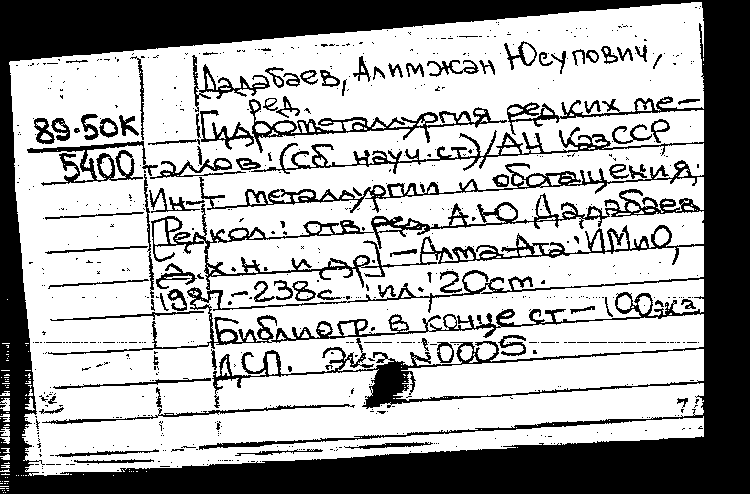 Дадабаев, Алимжан Юсупович,
ред.
89-50К
5400
Гидрометаллургия редких ме-
таллов: (Сб. науч. ст.)/АН КазССР,
Ин-т металлургии и обогащения;
[Редкол.: отв. ред. А.Ю. Дадабаев
д.х.н. и др.] - Алма-Ата: ИМиО,
1987. - 238с.: ил.; 20см.
Библиогр. в конце ст. - 100экз
ДСП. Экз. N0005.